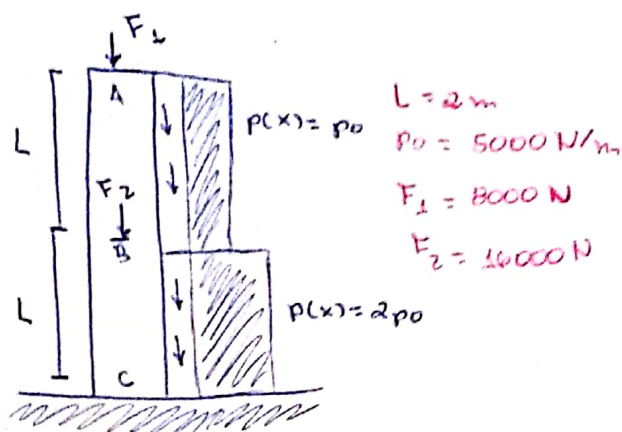 F1
A
L
p(x) = p0
F2
B
L
p(x) = 2p0
C
L = 2m
p0 = 5000 N/m
F1 = 8000 N
F2 = 16000 N